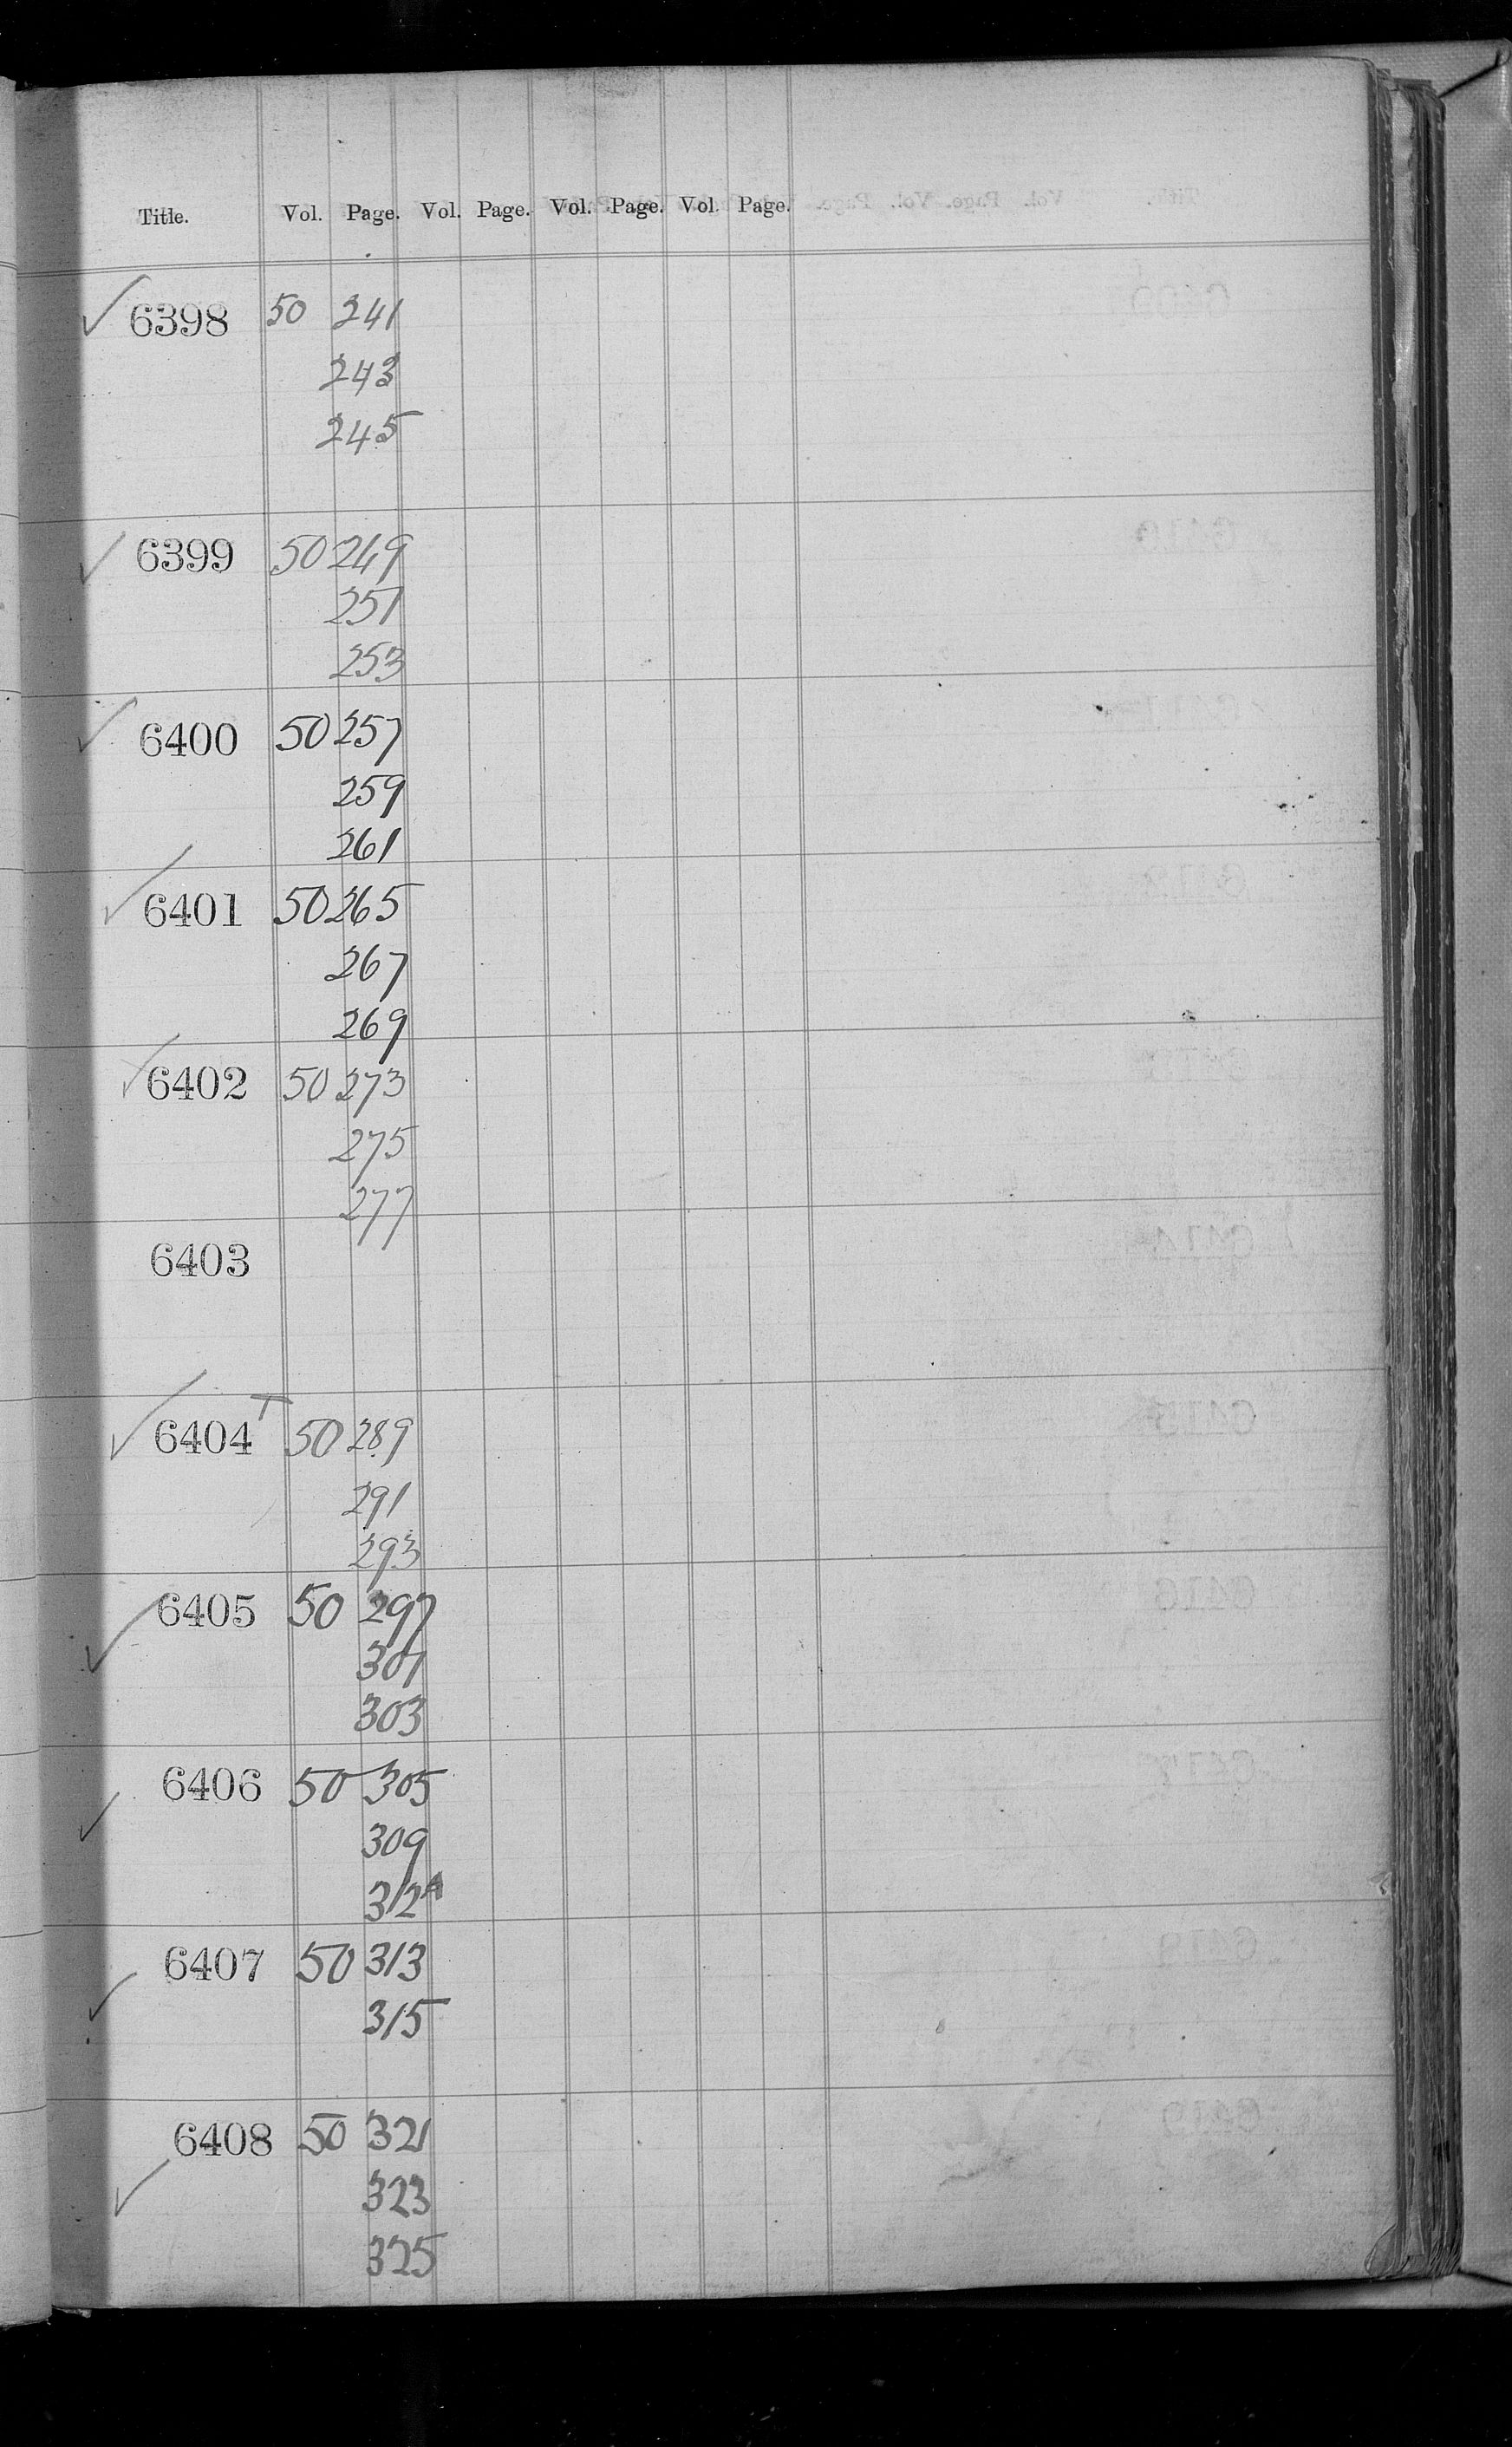 Title. Vol. Page. Vol. Page. Vol. Page. Vol. Page.
✓ 6398 50 241
243
245
✓ 6399 50 249
251
253
✓ 6400 50 257
259
261
✓ 6401 50 265
267
269
✓ 6402 50 273
275
277
6403
✓ 6404 T 50 289
291
293
✓ 6405 50 297
301
303
✓ 6406 50 305
309
312A
✓ 6407 50 313
315
✓ 6408 50 321
323
325